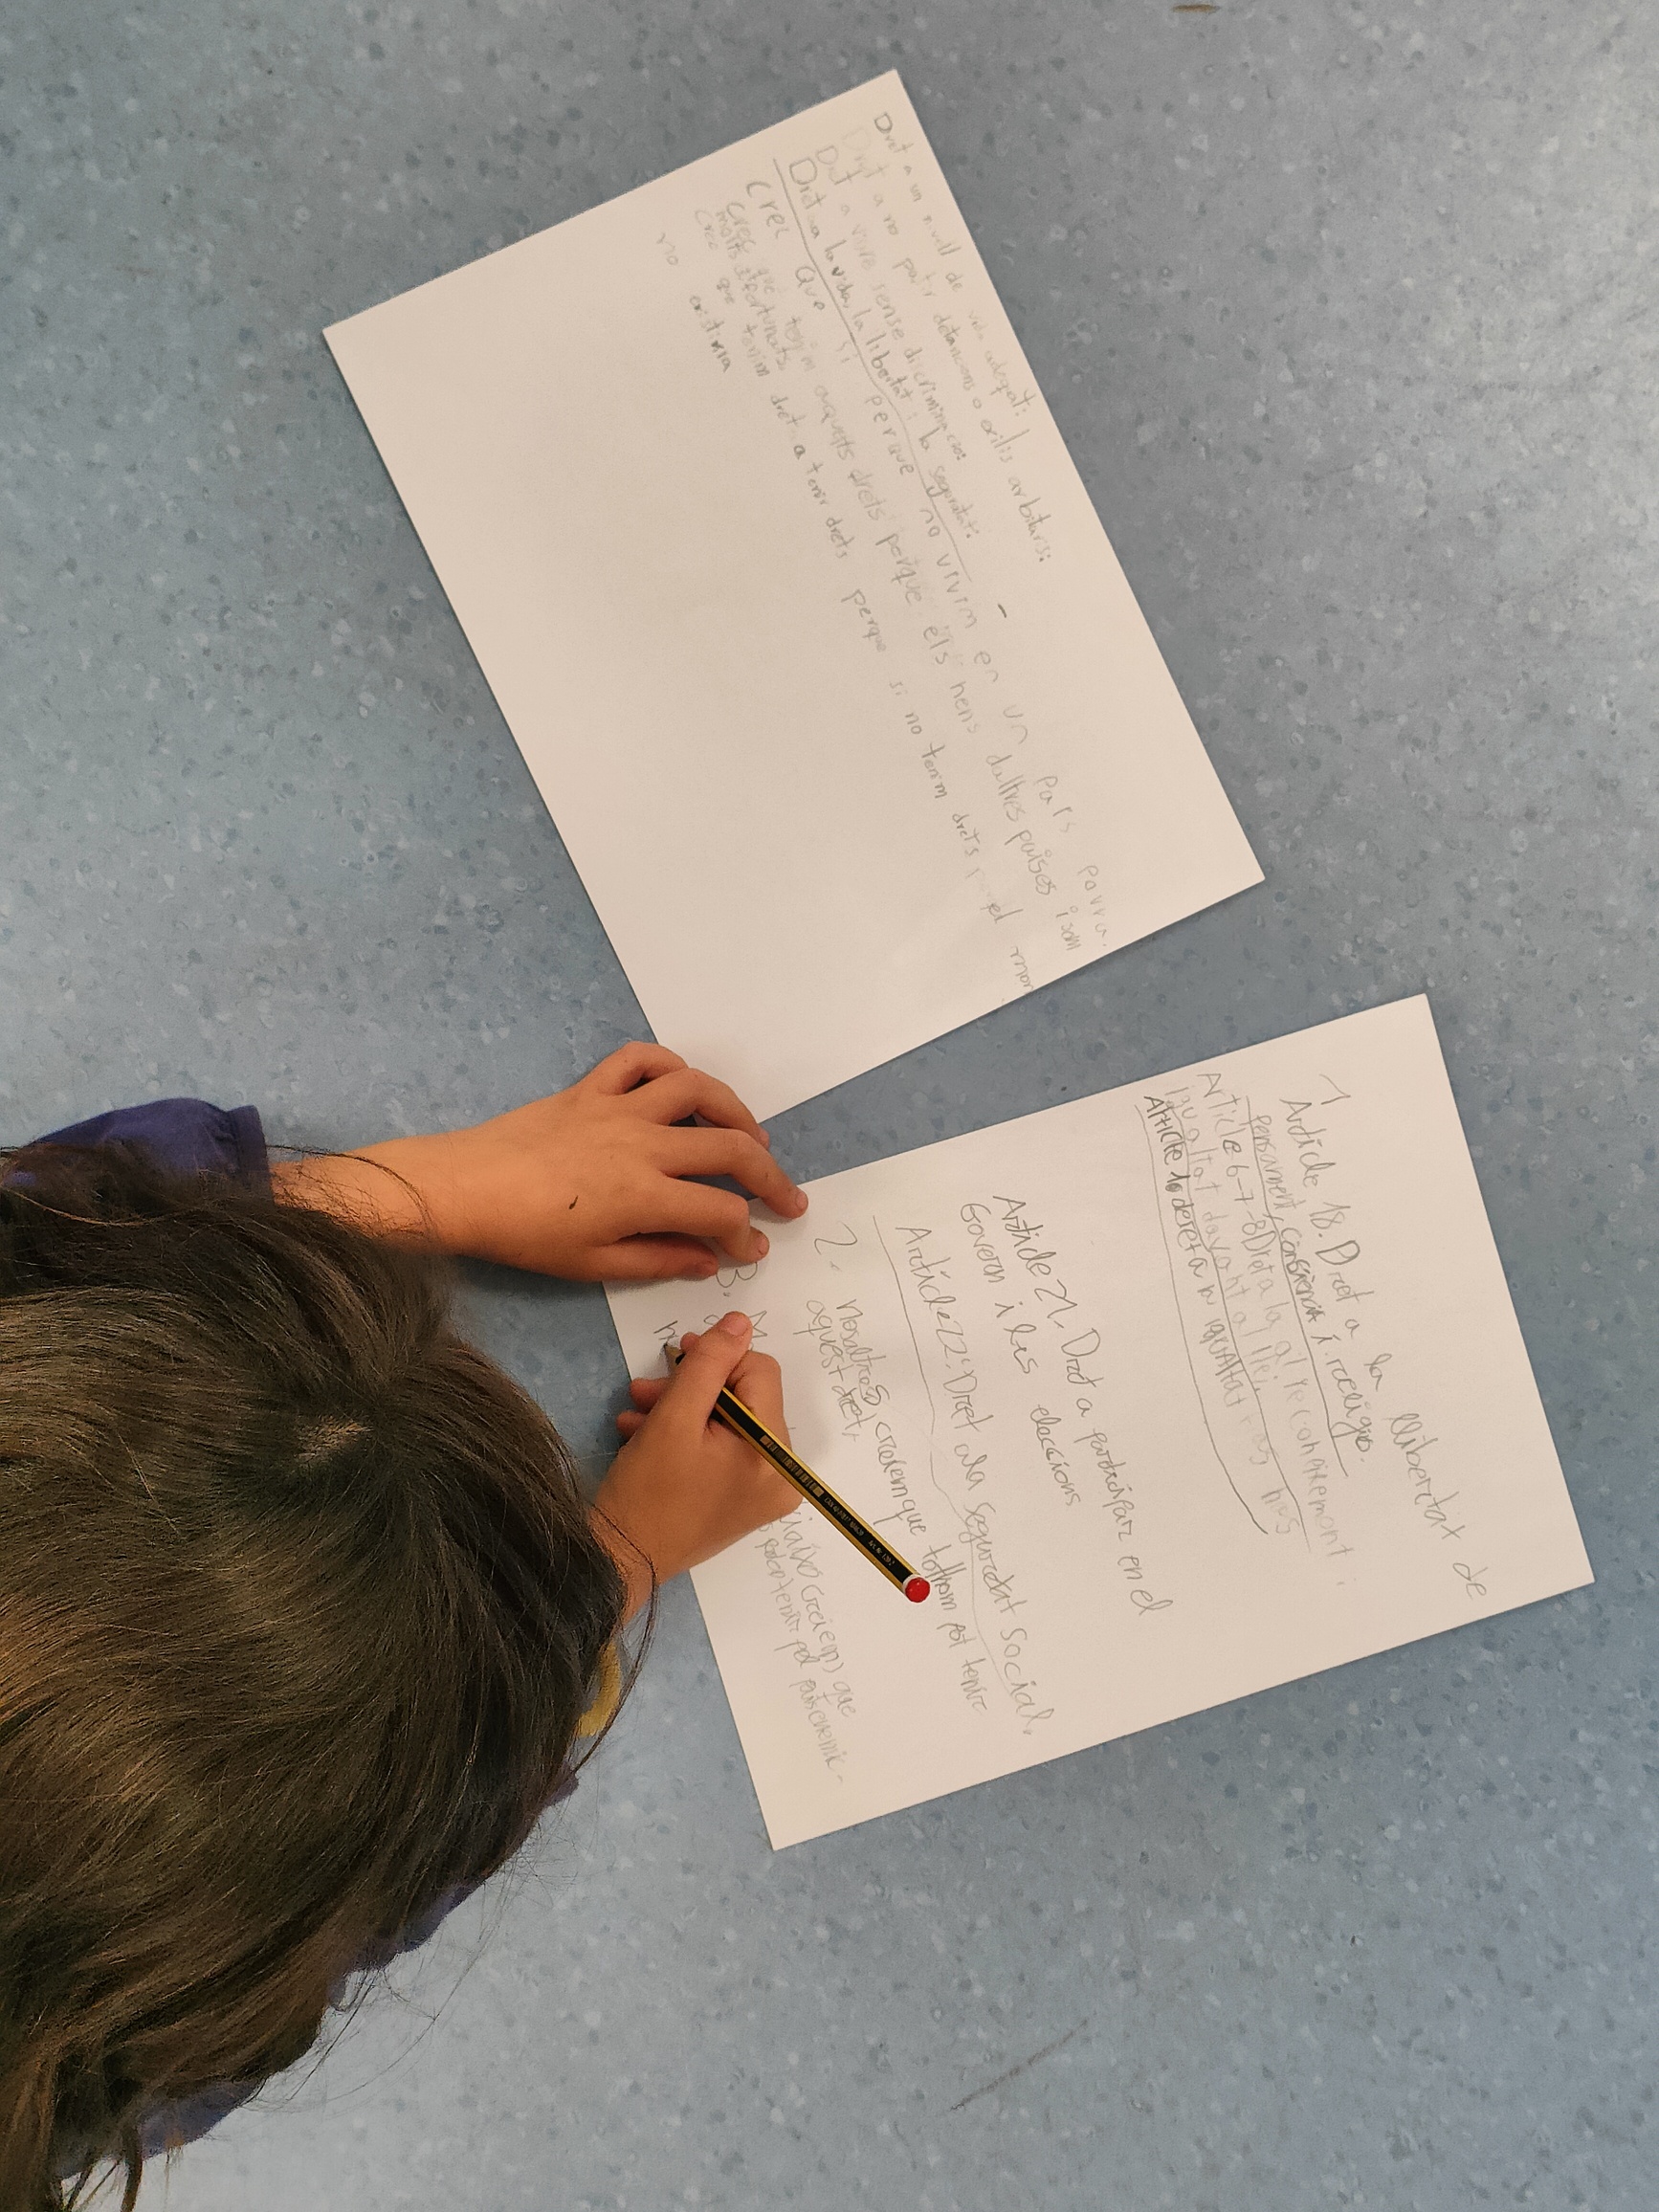 Dret a un nivell de vida adequat:
Dret a no patir detencions o exilis arbitaris:
Dret a viure sense discriminacio:
Dret a la vida, la llibertat i la seguretat:
Crec que si perque no vivim en un pais povra.
Crec que tenim aquests drets perque els nens daltres paises i som
molts afortunats
Crec que tenim dret a tenir drets perque si no tenim drets el mon
no existiria
1
Article 18. Dret a la llibertat de
pensament, consciencia i religio.
Article 6-7-8 Dret a la al reconeixement i
igualtat davant al llei,
Article 1. dret a la igualtat
Article 21. Dret a participar en el
Govern i les eleccions
Article 22. Dret ala Seguredat Social.
2. Nosaltres creiem que tothom pot tenir
aquest dret,
3. creiem que
poden tenir pel